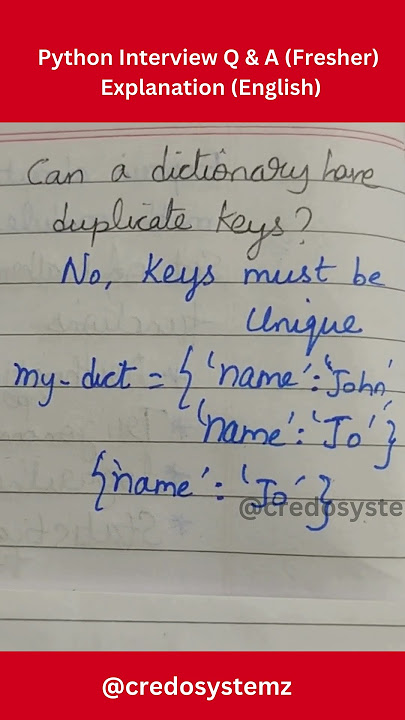 Python Interview Q & A (Fresher)
Explanation (English)
Can a dictionary have
duplicate keys?
No, Keys must be
Unique
my-dict = { 'name': 'John'
'name': 'Jo' }
{'name': 'Jo' }
@credosyste
@credosystemz